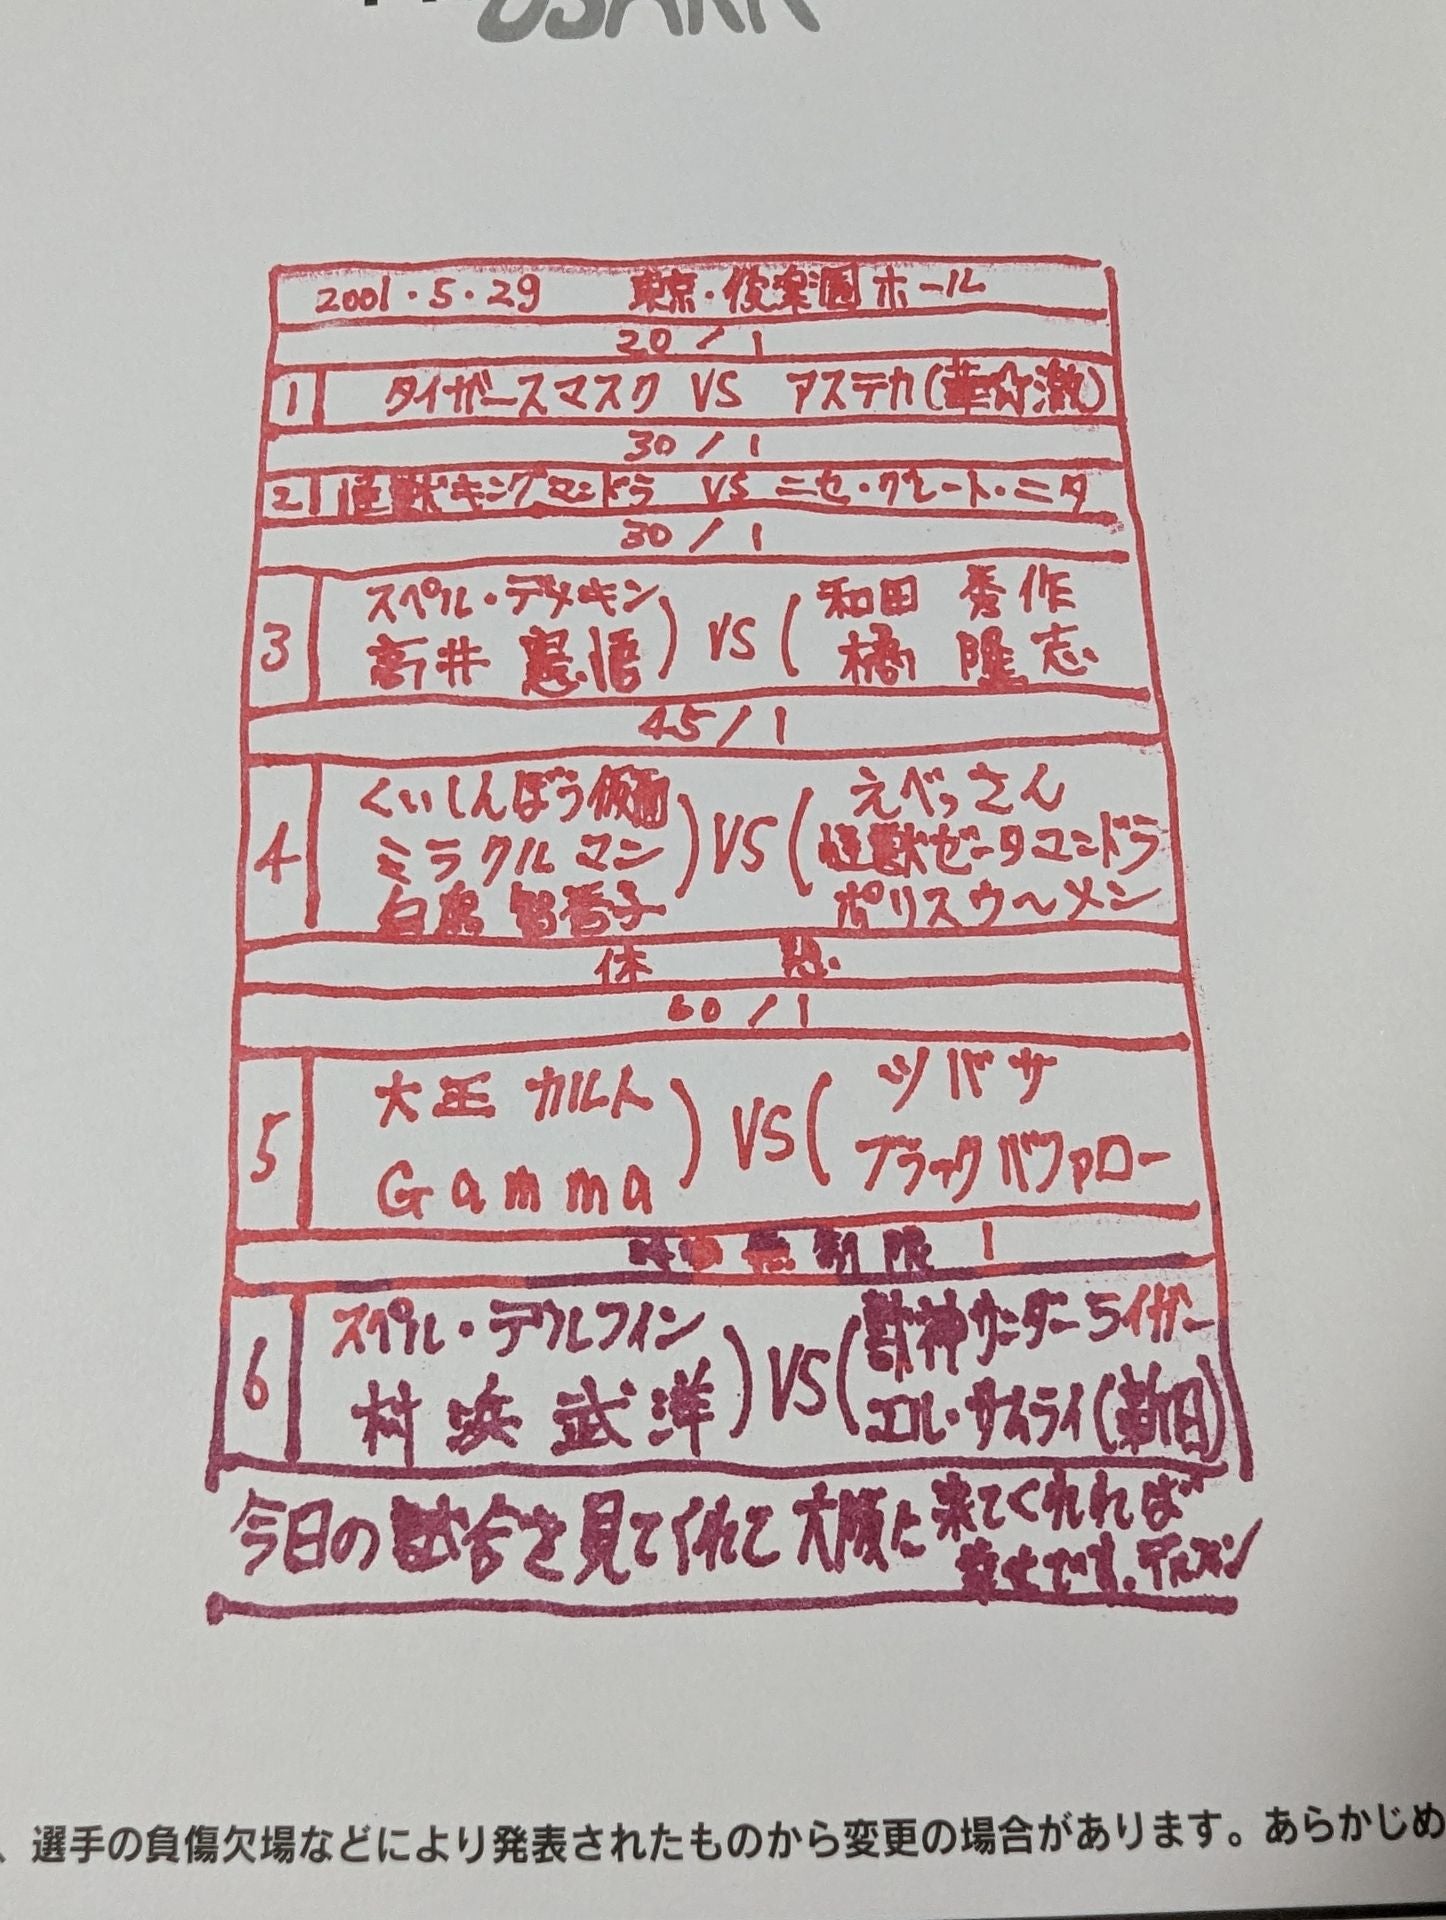 OSAKA
2001・5・29 東京・後楽園ホール
20/1
1 タイガースマスク VS アステカ(華☆激)
30/1
2 怪獣キングマンドラ VS ニセ・グレート・ニタ
30/1
3 スペル・デメキン 高井 憲悟) VS (和田 秀作 橋 隆志
45/1
4 くいしんぼう仮面 ミラクルマン 白鳥 智香子) VS (えべっさん 怪獣ゼータマンドラ ポリスウ〜メン
休 憩
60/1
5 大王 カルト Gamma) VS (ツバサ ブラックバファロー
時間無制限 1
6 スペル・デルフィン 村浜 武洋) VS (獣神サンダーライガー エル・サムライ(新日)
今日の試合を見てくれて大阪に来てくれれば
幸せです。デルフィン
、選手の負傷欠場などにより発表されたものから変更の場合があります。あらかじめ